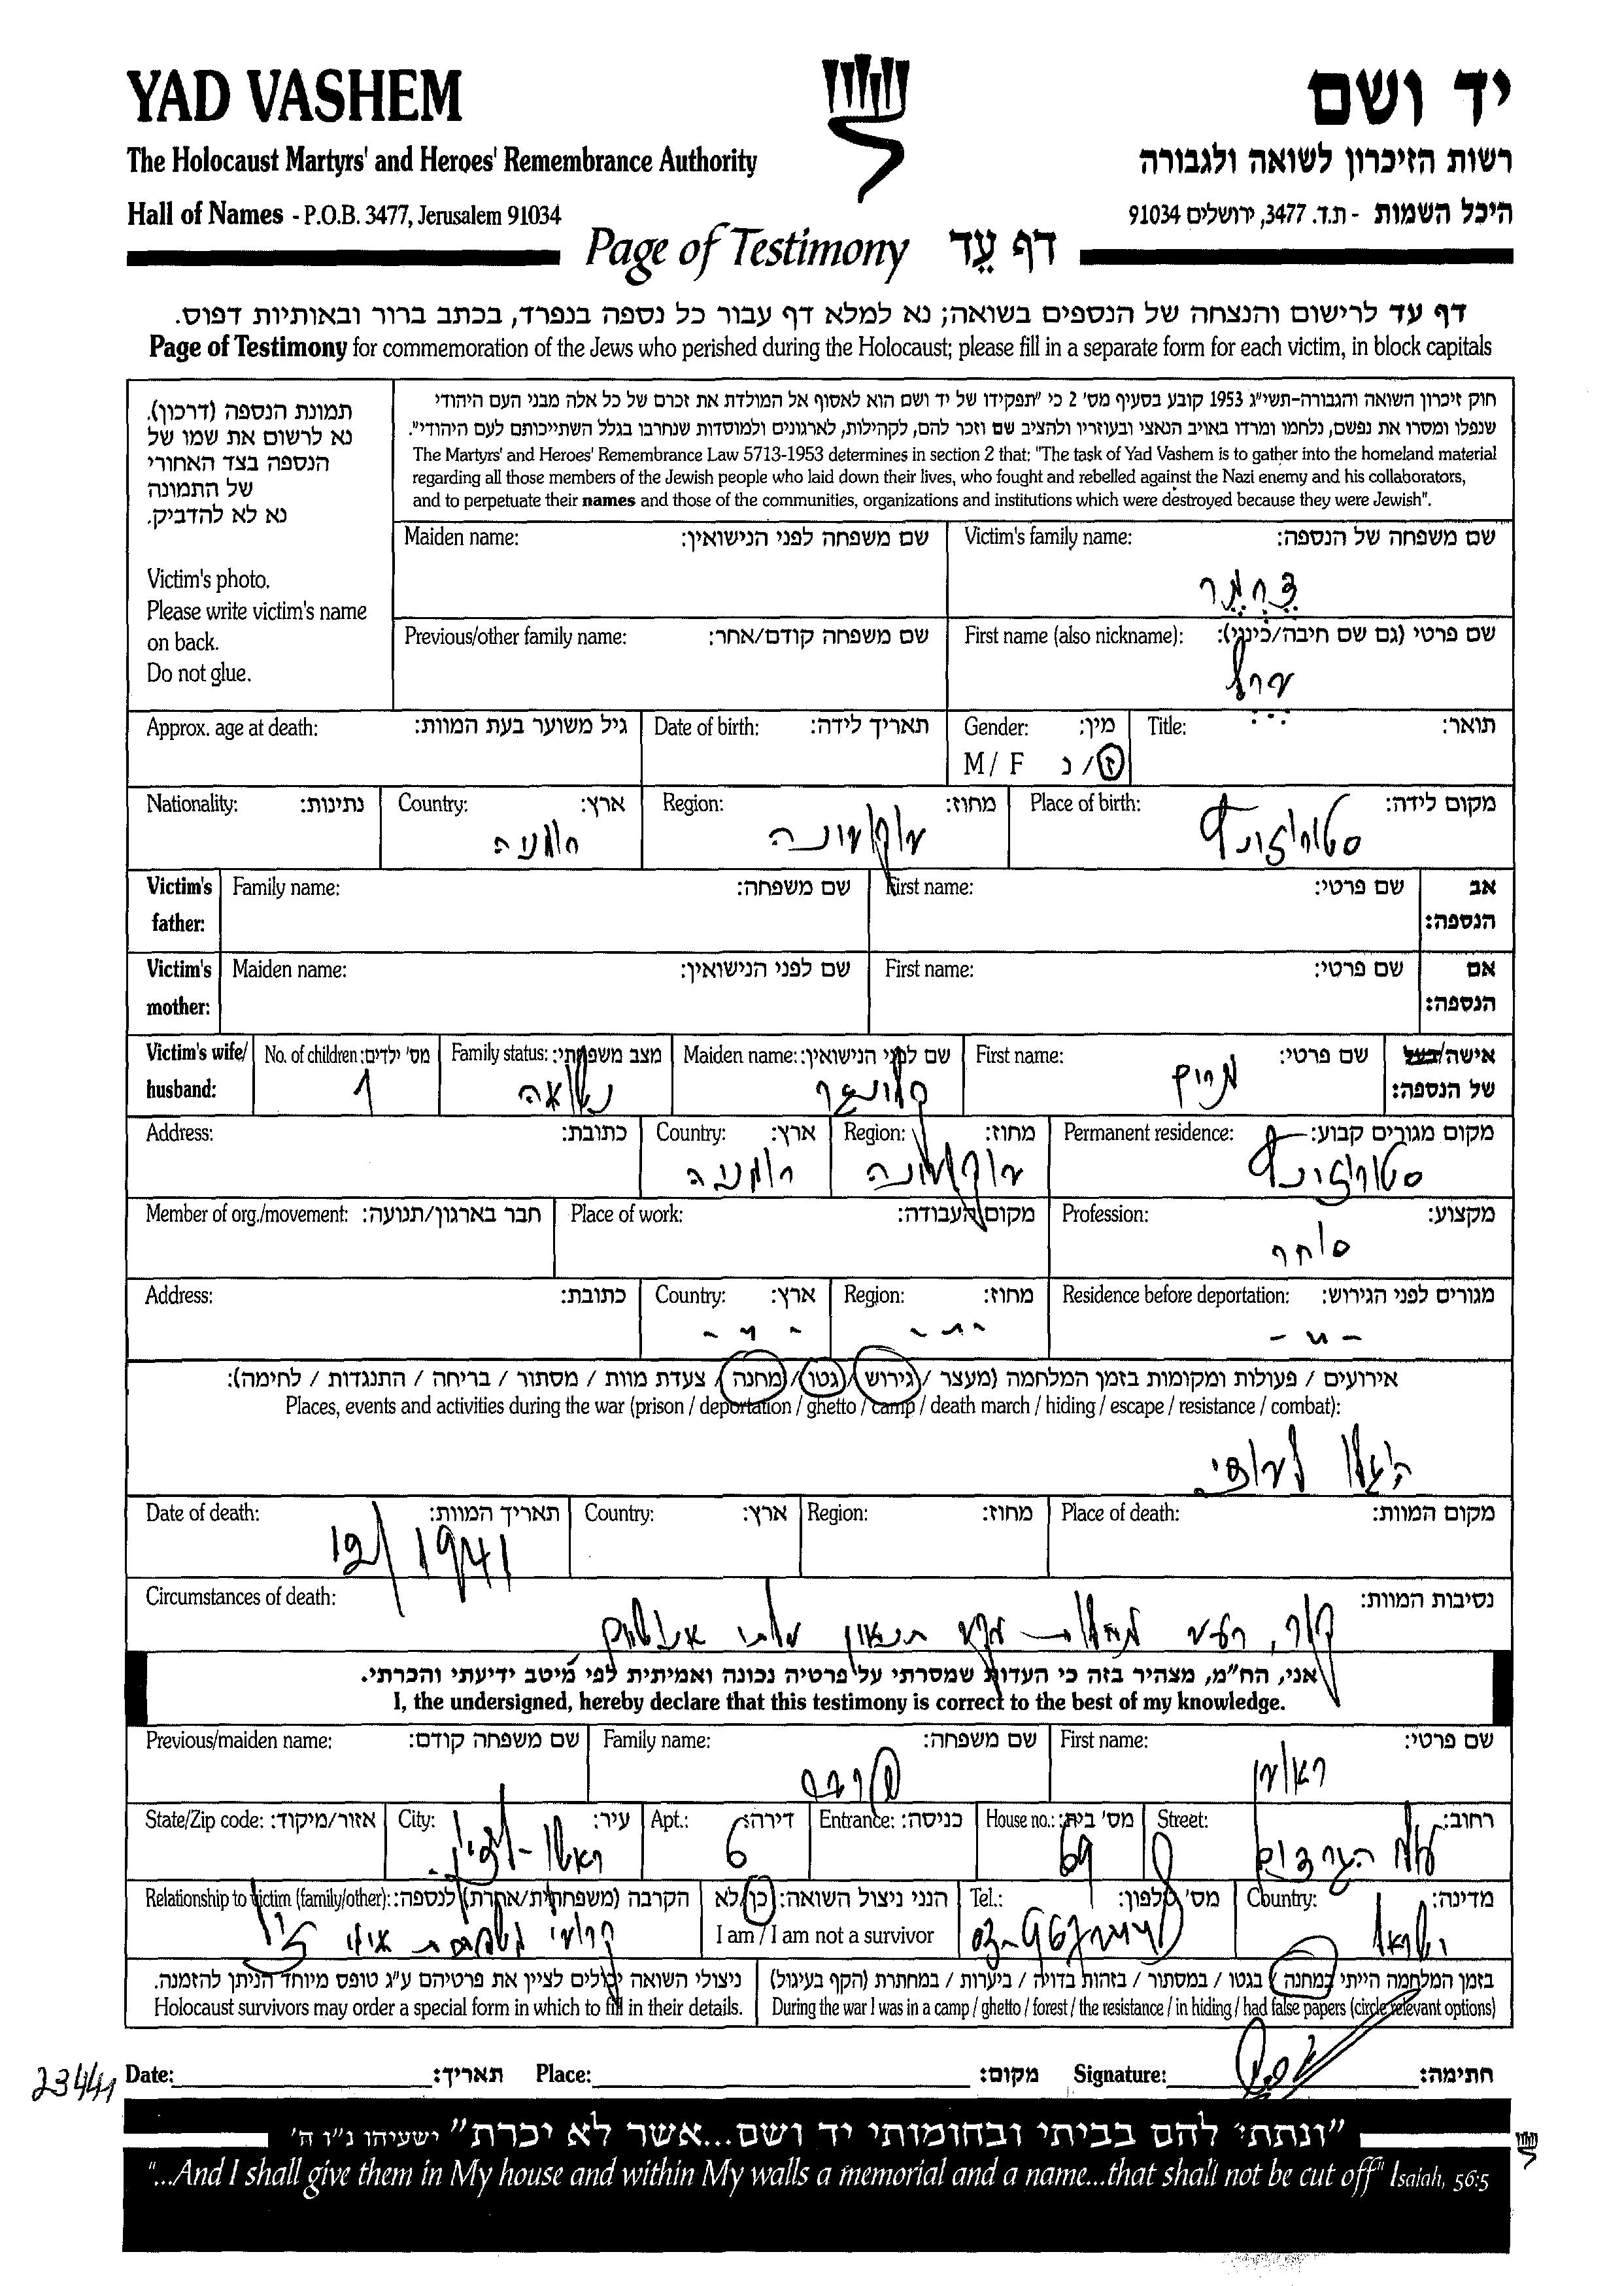 YAD VASHEM
יד ושם
The Holocaust Martyrs' and Heroes' Remembrance Authority
רשות הזיכרון לשואה ולגבורה
Hall of Names - P.O.B. 3477, Jerusalem 91034
היכל השמות - ת.ד. 3477, ירושלים 91034
Page of Testimony דף עֵד
דף עד לרישום והנצחה של הנספים בשואה; נא למלא דף עבור כל נספה בנפרד, בכתב ברור ובאותיות דפוס.
Page of Testimony for commemoration of the Jews who perished during the Holocaust; please fill in a separate form for each victim, in block capitals
תמונת הנספה (דרכון).
נא לרשום את שמו של
הנספה בצד האחורי
של התמונה
נא לא להדביק.
Victim's photo.
Please write victim's name
on back.
Do not glue.
חוק זיכרון השואה והגבורה-תשי"ג 1953 קובע בסעיף מס' 2 כי "תפקידו של יד ושם הוא לאסוף אל המולדת את זכרם של כל אלה מבני העם היהודי
שנפלו ומסרו את נפשם, נלחמו ומרדו באויב הנאצי ובעוזריו ולהציב שם וזכר להם, לקהילות, לארגונים ולמוסדות שנחרבו בגלל השתייכותם לעם היהודי".
The Martyrs' and Heroes' Remembrance Law 5713-1953 determines in section 2 that: "The task of Yad Vashem is to gather into the homeland material
regarding all those members of the Jewish people who laid down their lives, who fought and rebelled against the Nazi enemy and his collaborators,
and to perpetuate their names and those of the communities, organizations and institutions which were destroyed because they were Jewish".
Maiden name: שם משפחה לפני הנישואין:
Victim's family name: שם משפחה של הנספה:
Previous/other family name: שם משפחה קודם/אחר:
First name (also nickname): שם פרטי (גם שם חיבה/כינוי):
Approx. age at death: גיל משוער בעת המוות:
Date of birth: תאריך לידה:
Gender: מין:
M / F ז / נ
Title: תואר:
Nationality: נתינות:
Country: ארץ:
רומניה
Region: מחוז:
Place of birth: מקום לידה:
סטורוז'ינץ
Victim's father: Family name: שם משפחה: First name: שם פרטי: אב הנספה:
Victim's mother: Maiden name: שם לפני הנישואין: First name: שם פרטי: אם הנספה:
Victim's wife/ husband:
No. of children: מס' ילדים:
1
Family status: מצב משפחתי:
נשואה
Maiden name: שם לפני הנישואין:
First name: שם פרטי:
מרים
אישה/בעל של הנספה:
Address: כתובת:
Country: ארץ:
רומניה
Region: מחוז:
Permanent residence: מקום מגורים קבוע:
סטורוז'ינץ
Member of org./movement: חבר בארגון/תנועה:
Place of work: מקום העבודה:
Profession: מקצוע:
סוחר
Address: כתובת:
Country: ארץ:
- " -
Region: מחוז:
- " -
Residence before deportation: מגורים לפני הגירוש:
- " -
אירועים / פעולות ומקומות בזמן המלחמה (מעצר / גירוש / גטו / מחנה / צעדת מוות / מסתור / בריחה / התנגדות / לחימה):
Places, events and activities during the war (prison / deportation / ghetto / camp / death march / hiding / escape / resistance / combat):
Date of death: תאריך המוות:
12/1941
Country: ארץ:
Region: מחוז:
Place of death: מקום המוות:
Circumstances of death: נסיבות המוות:
קור, רעב
אני, הח"מ, מצהיר בזה כי העדות שמסרתי על פרטיה נכונה ואמיתית לפי מיטב ידיעתי והכרתי.
I, the undersigned, hereby declare that this testimony is correct to the best of my knowledge.
Previous/maiden name: שם משפחה קודם:
Family name: שם משפחה:
First name: שם פרטי:
ראובן
State/Zip code: אזור/מיקוד:
City: עיר:
ראשון-לציון
Apt.: דירה:
6
Entrance: כניסה:
House no.: מס' בית:
69
Street: רחוב:
Relationship to victim (family/other): הקרבה (משפחתית/אחרת) לנספה:
הנני ניצול השואה: כן/לא
I am / I am not a survivor
Tel.: מס' טלפון:
Country: מדינה:
ישראל
ניצולי השואה יכולים לציין את פרטיהם ע"ג טופס מיוחד הניתן להזמנה.
Holocaust survivors may order a special form in which to fill in their details.
בזמן המלחמה הייתי במחנה / בגטו / במסתור / בזהות בדויה / ביערות / במחתרת (הקף בעיגול)
During the war I was in a camp / ghetto / forest / the resistance / in hiding / had false papers (circle relevant options)
23441
Date: תאריך:
Place: מקום:
Signature: חתימה:
"ונתתי להם בביתי ובחומותי יד ושם...אשר לא יכרת" ישעיהו נ"ו ה'
"...And I shall give them in My house and within My walls a memorial and a name...that shall not be cut off" Isaiah, 56:5